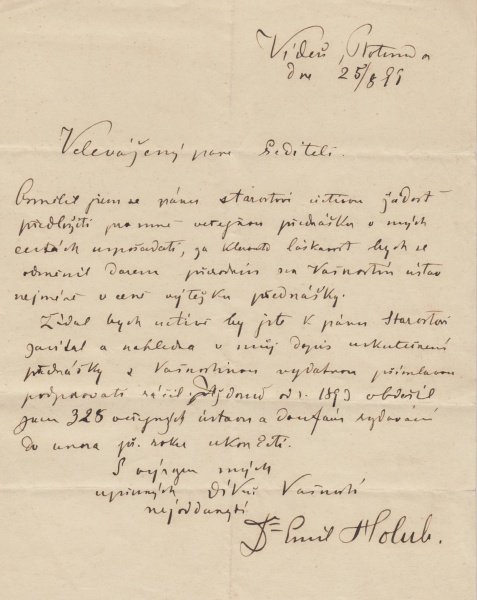 Vídeň, Rotunda
dne 25/8 99
Velevážený pane řediteli.
jsem se pánu starostovi uctivou žádost
předložiti pro mne veřejnou přednášku o mých
cestách uspořádati, za kteroužto laskavost bych se
odměnil darem přírodnin na Vašnostin ústav
nejméně v ceně výtěžku přednášky.
Žádal bych uctivě by jste k pánu Starostovi
zavítal a nahledna v můj dopis uskutečnění
přednášky s Vašnostinou vydatnou přímluvou
podporovati ráčil. Až dosud od r. 1893 obdařil
jsem 325 veřejných ústavů a doufám rozdávání
do února př. roku ukončiti.
S výrazem mých
upřímných díků Vašnosti
nejoddanější
Dr Emil Holub.